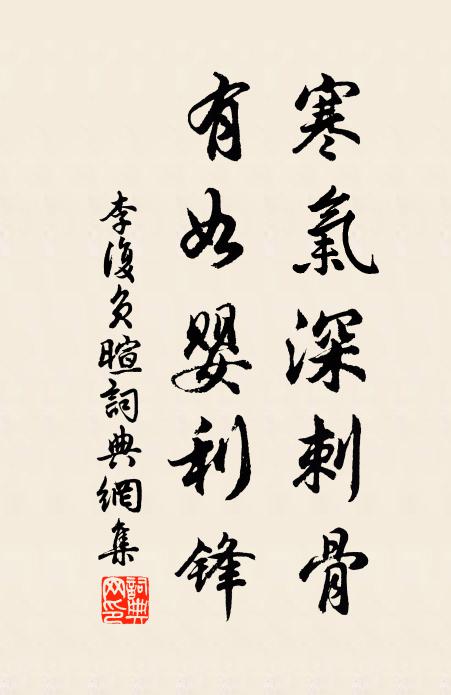 寒氣深刺骨
有如嬰利鋒
李復負暄詞典網集
詞典網印